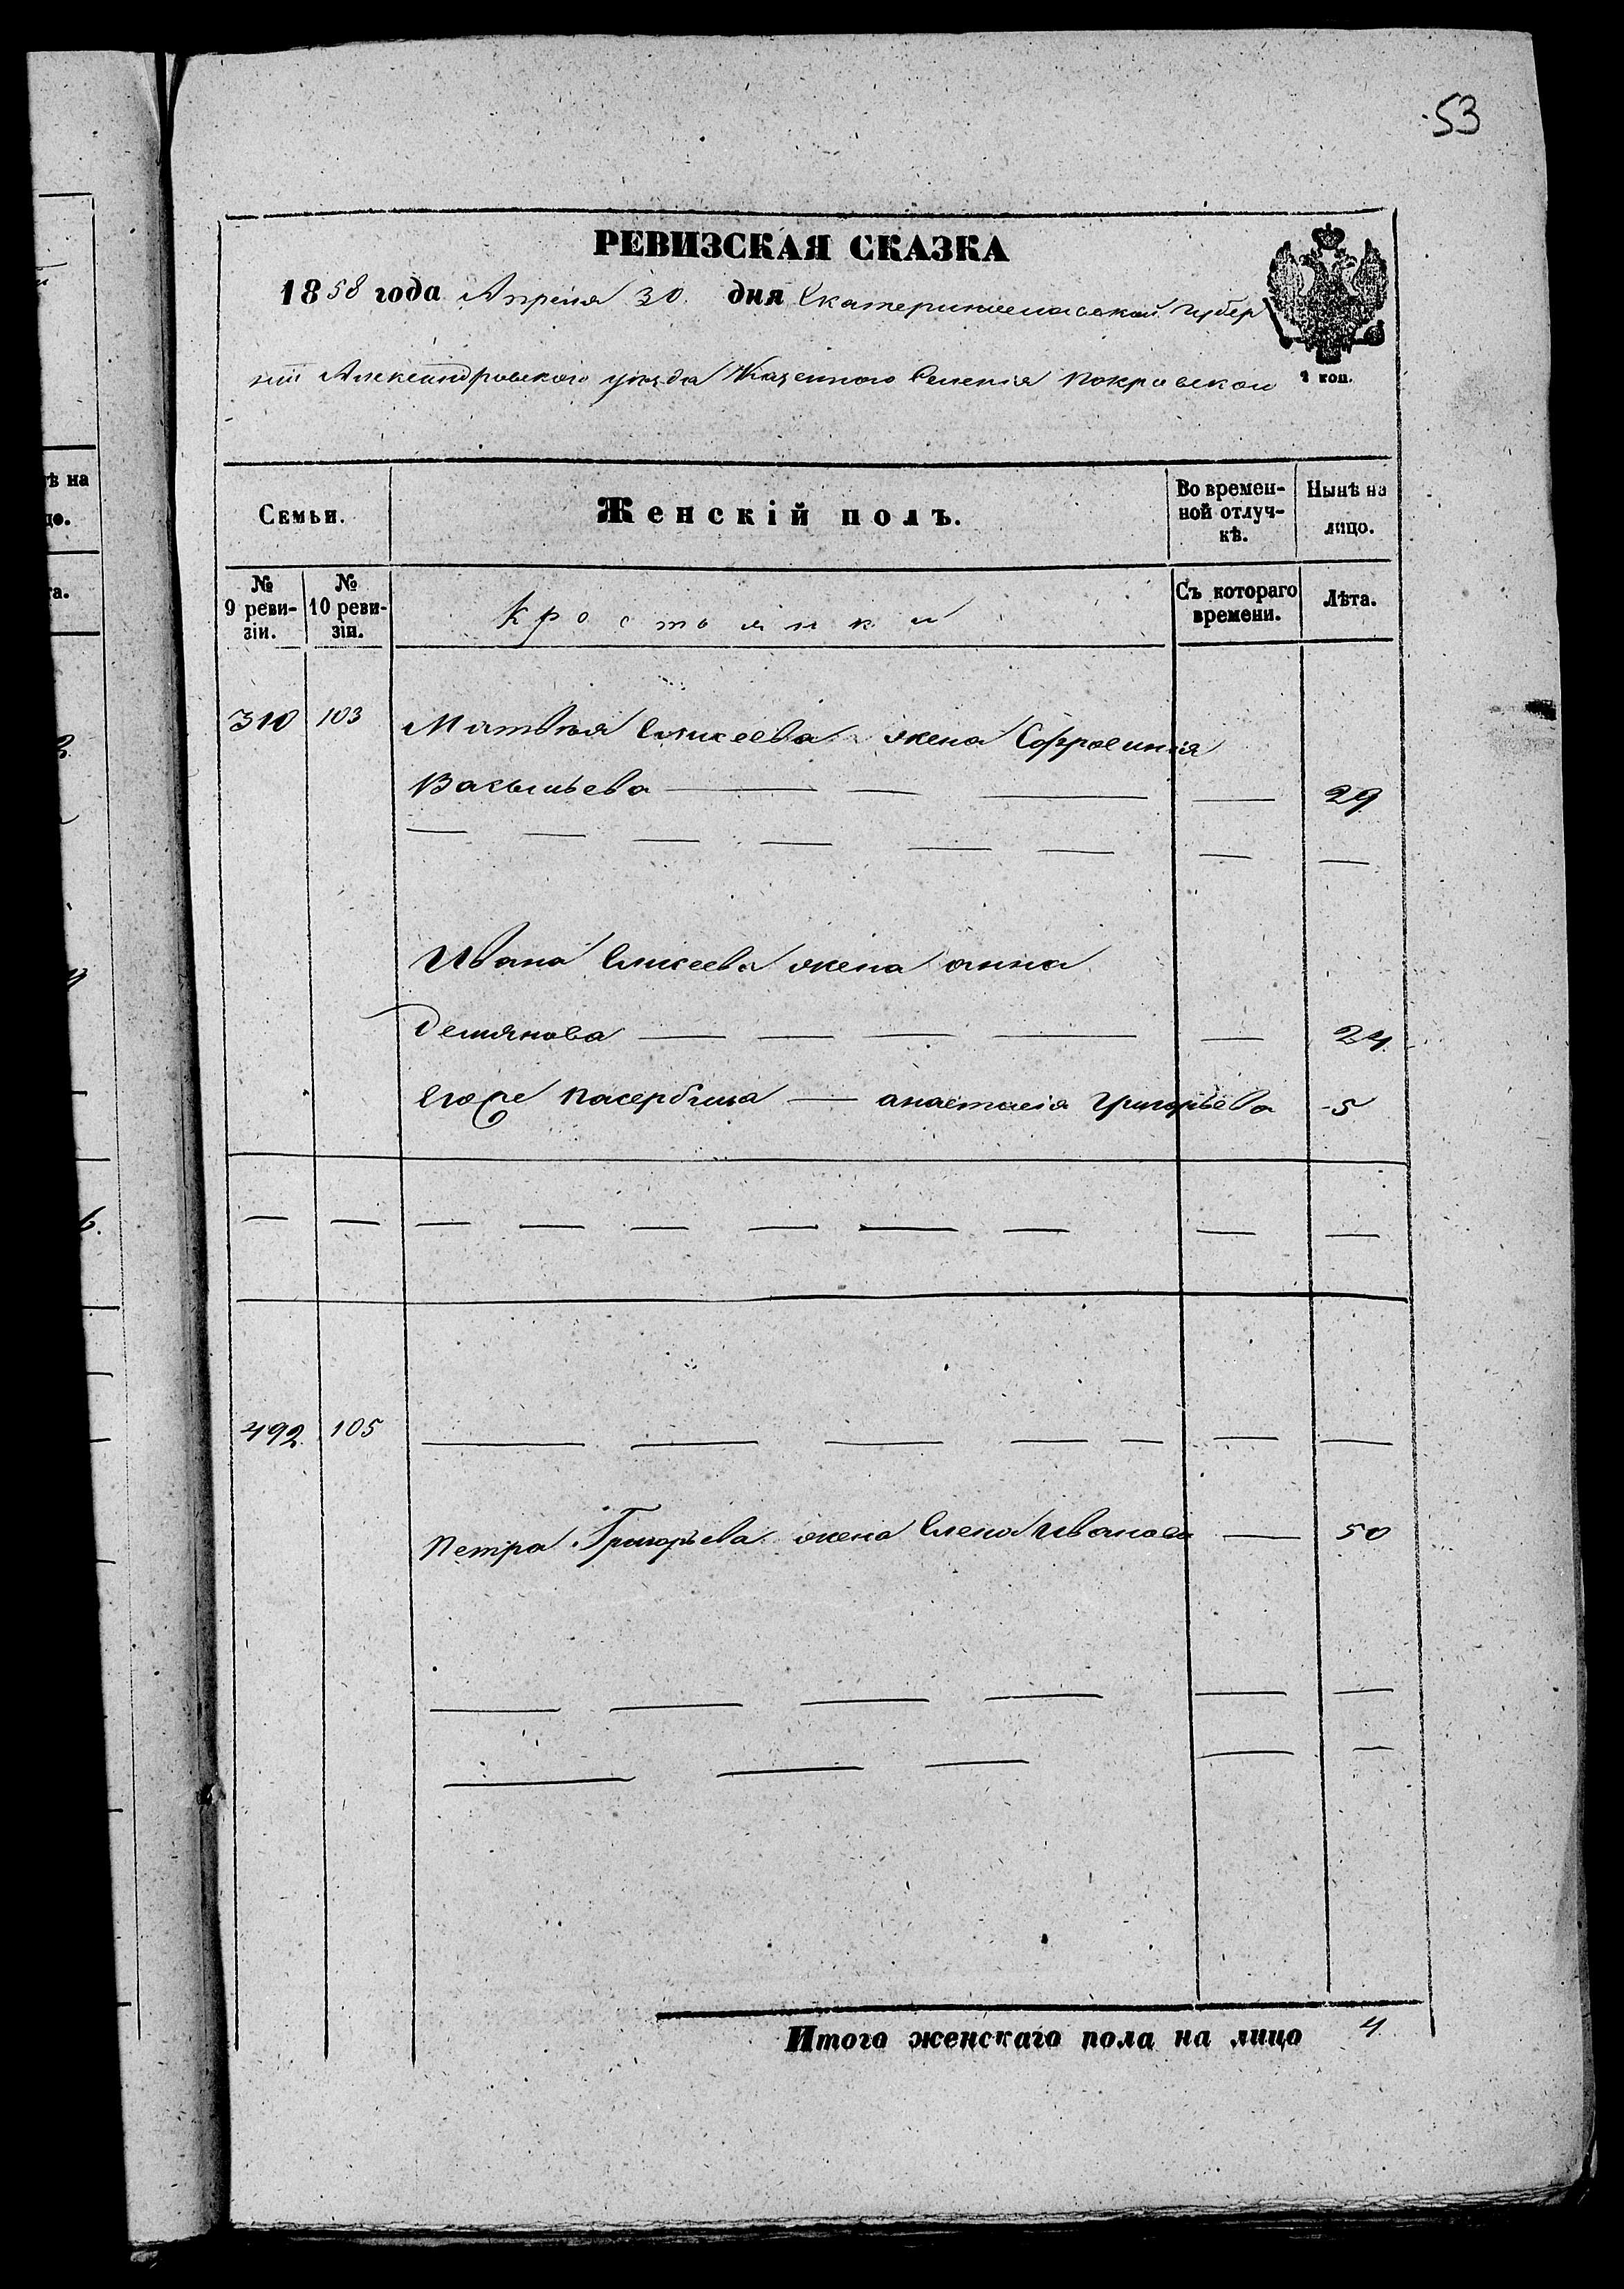 53
РЕВИЗСКАЯ СКАЗКА
1858 года Апреля 30. дня Екатеринославской губер
нии Александровского уезда Казенного Селения Покровской
1 коп.
Семьи. Женскій полъ. Во времен-ной отлуч-кѣ. Нынѣ на лицо.
№ 9 реви-зіи. № 10 реви-зіи. Крестьянки Съ котораго времени. Лѣта.
310 103 Матвѣя Елисеева жена Ефросинія
Васильева — — — — 29
— — — — — — — —
Ивана Елисеева жена анна
Демянова — — — — — 24
Его же Пасербица — анастасія Григорьева 5
— — — — — — — — — —
492. 105 — — — — — — —
Петра Григорьева жена Елена Иванова — 50
— — — — — —
— — — — —
Итого женскаго пола на лицо 4.
ѣ на
цо.
та.